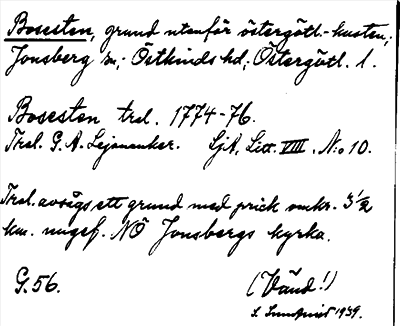 Bosesten, grund utanför östergötl.-kusten,
Jonsberg sn, Östkinds hd, Östergötl. l.
Bosesten trol. 1774-76.
Trol. G. A. Lejonanker. SjA, Litt. VIII. No 10.
Trol. avsågs ett grund med prick omkr. 3 1/2
km. ungef. NÖ Jonsbergs kyrka.
G. 56.
(Vänd!)
S. Lundqvist 1939.